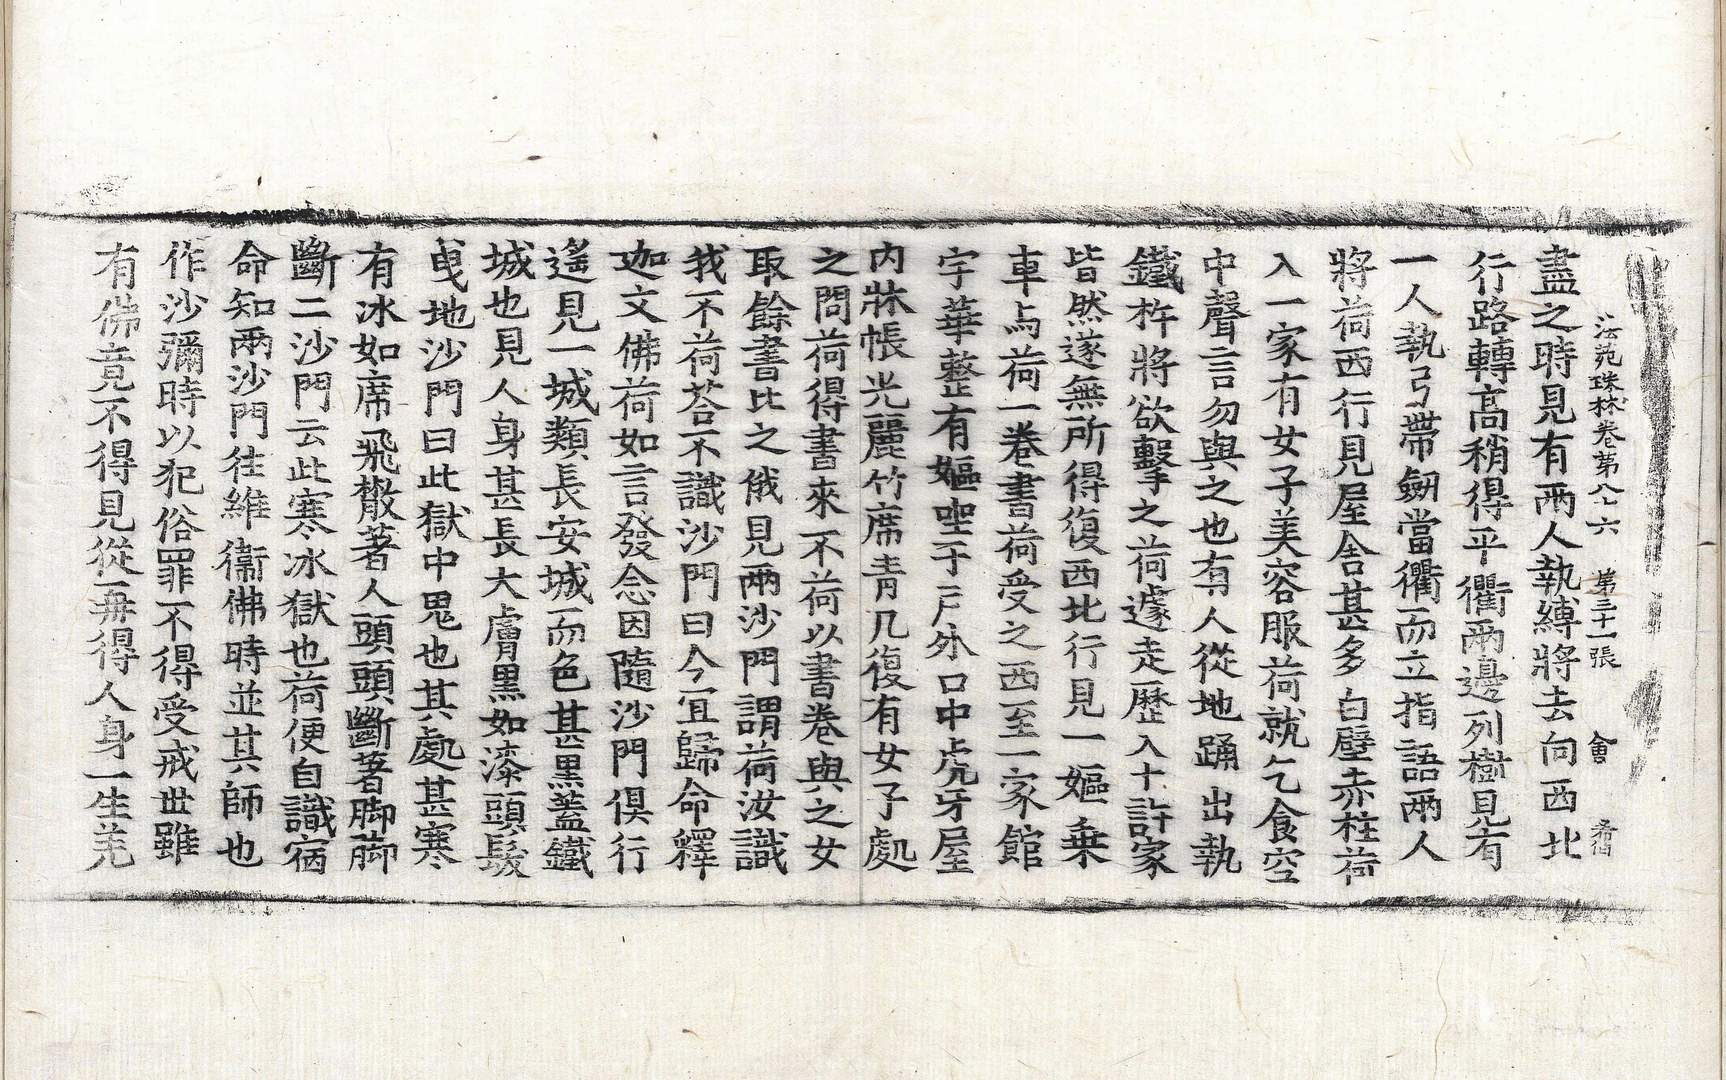 法苑珠林卷第八十六 第三十一張 會 㣲
盡之時見有兩人執縛將去向西北
行路轉高稍得平衢兩邊列樹見有
一人執弓帶劒當衢而立指語兩人
將荷西行見屋舍甚多白壁赤柱荷
入一家有女子美容服荷就乞食空
中聲言勿與之也有人從地踊出執
鐵杵將欲擊之荷遽走歷入十許家
皆然遂無所得復西北行見一嫗乗
車与荷一卷書荷受之西至一家館
宇華整有嫗坐于户外口中虎牙屋
内牀帳光麗竹席青几復有女子處
之問荷得書來不荷以書卷與之女
取餘書比之俄見兩沙門謂荷汝識
我不荷荅不識沙門曰今宜歸命釋
迦文佛荷如言發念因隨沙門俱行
遙見一城類長安城而色甚黒蓋鐵
城也見人身甚長大膚黒如漆頭髮
曳地沙門曰此獄中鬼也其處甚寒
有冰如席飛散著人頭頭斷著脚脚
斷二沙門云此寒冰獄也荷便自識宿
命知兩沙門往維衞佛時並其師也
作沙彌時以犯俗罪不得受戒世雖
有佛竟不得見從再得人身一生羌